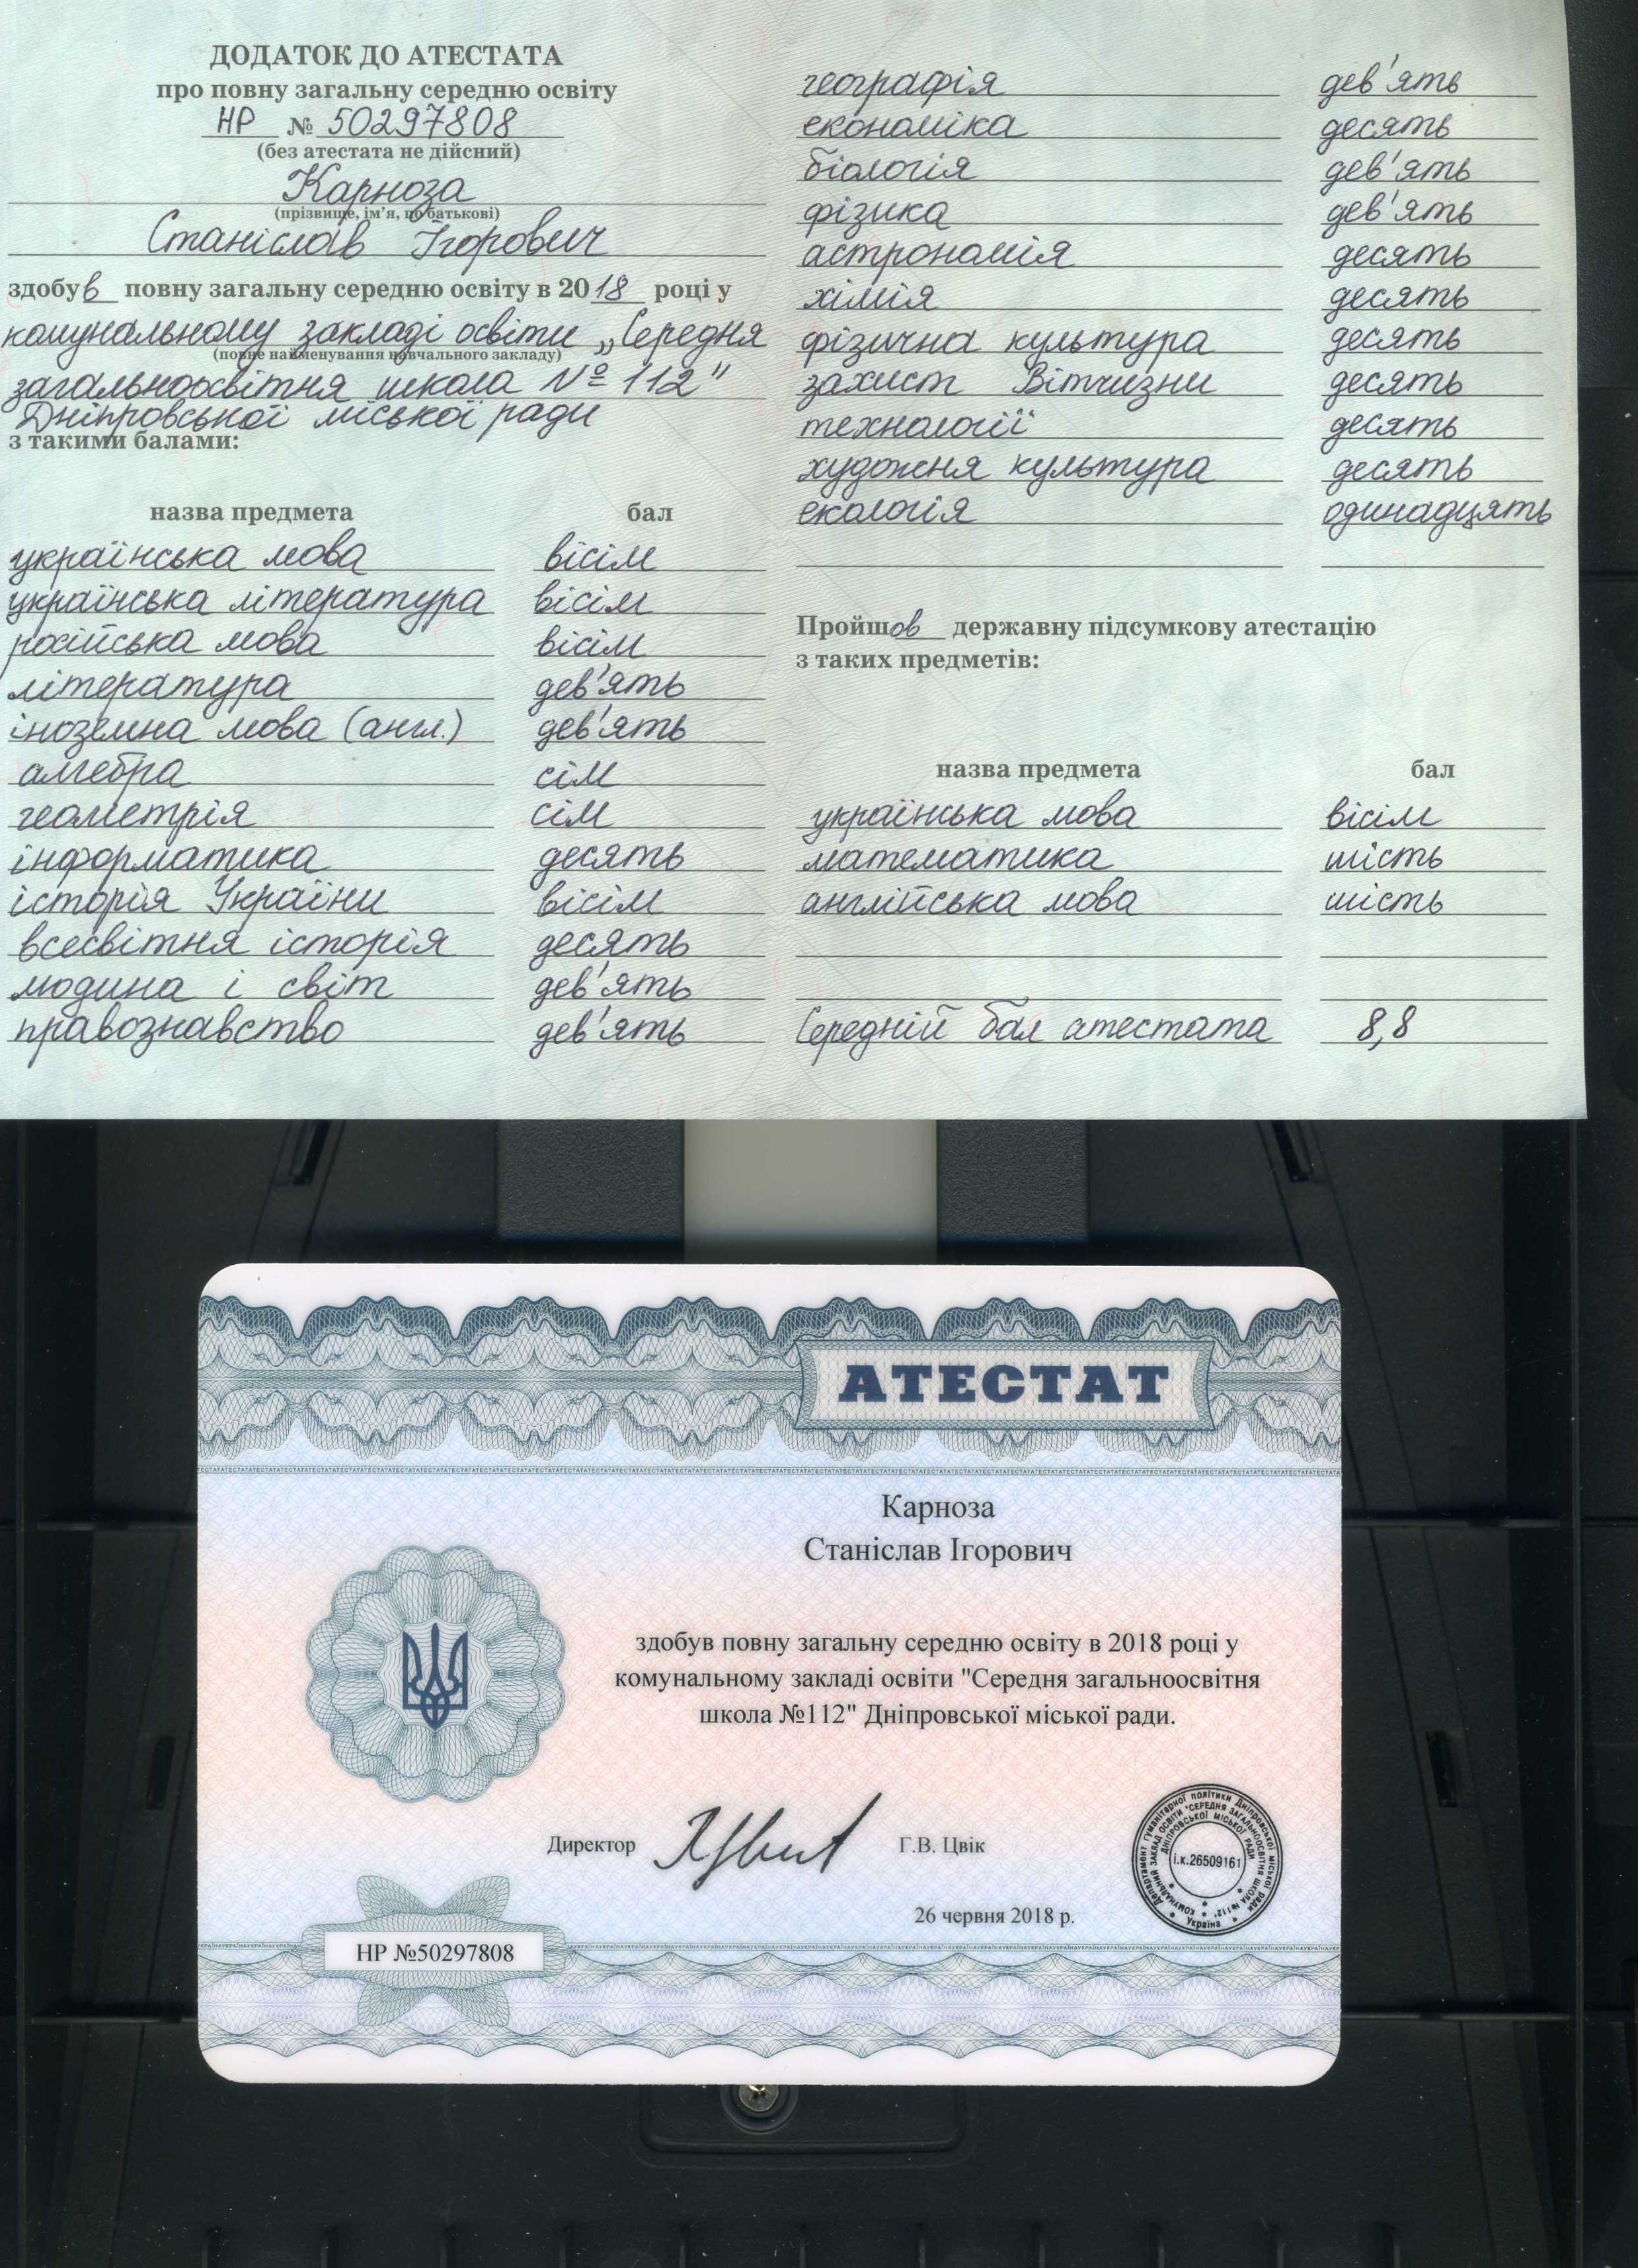 ДОДАТОК ДО АТЕСТАТА
про повну загальну середню освіту
НР № 50297808
(без атестата не дійсний)
Карноза
(прізвище, ім'я, по батькові)
Станіслав Ігорович
здобув повну загальну середню освіту в 2018 році у
комунальному закладі освіти „Середня
(повне найменування навчального закладу)
загальноосвітня школа № 112"
Дніпровської міської ради
з такими балами:
назва предмета бал
українська мова вісім
українська література вісім
російська мова вісім
література дев'ять
іноземна мова (англ.) дев'ять
алгебра сім
геометрія сім
інформатика десять
історія України вісім
всесвітня історія десять
людина і світ дев'ять
правознавство дев'ять
географія дев'ять
економіка десять
біологія дев'ять
фізика дев'ять
астрономія десять
хімія десять
фізична культура десять
захист Вітчизни десять
технології десять
художня культура десять
екологія одинадцять
Пройшов державну підсумкову атестацію
з таких предметів:
назва предмета бал
українська мова вісім
математика шість
англійська мова шість
Середній бал атестата 8,8
АТЕСТАТ
Карноза
Станіслав Ігорович
здобув повну загальну середню освіту в 2018 році у
комунальному закладі освіти "Середня загальноосвітня
школа №112" Дніпровської міської ради.
Директор Г.В. Цвік
26 червня 2018 р.
НР №50297808
Департамент гуманітарної політики Дніпровської міської ради
КОМУНАЛЬНИЙ ЗАКЛАД ОСВІТИ "СЕРЕДНЯ ЗАГАЛЬНООСВІТНЯ ШКОЛА №112"
ДНІПРОВСЬКОЇ МІСЬКОЇ РАДИ
і.к.26509161
Україна